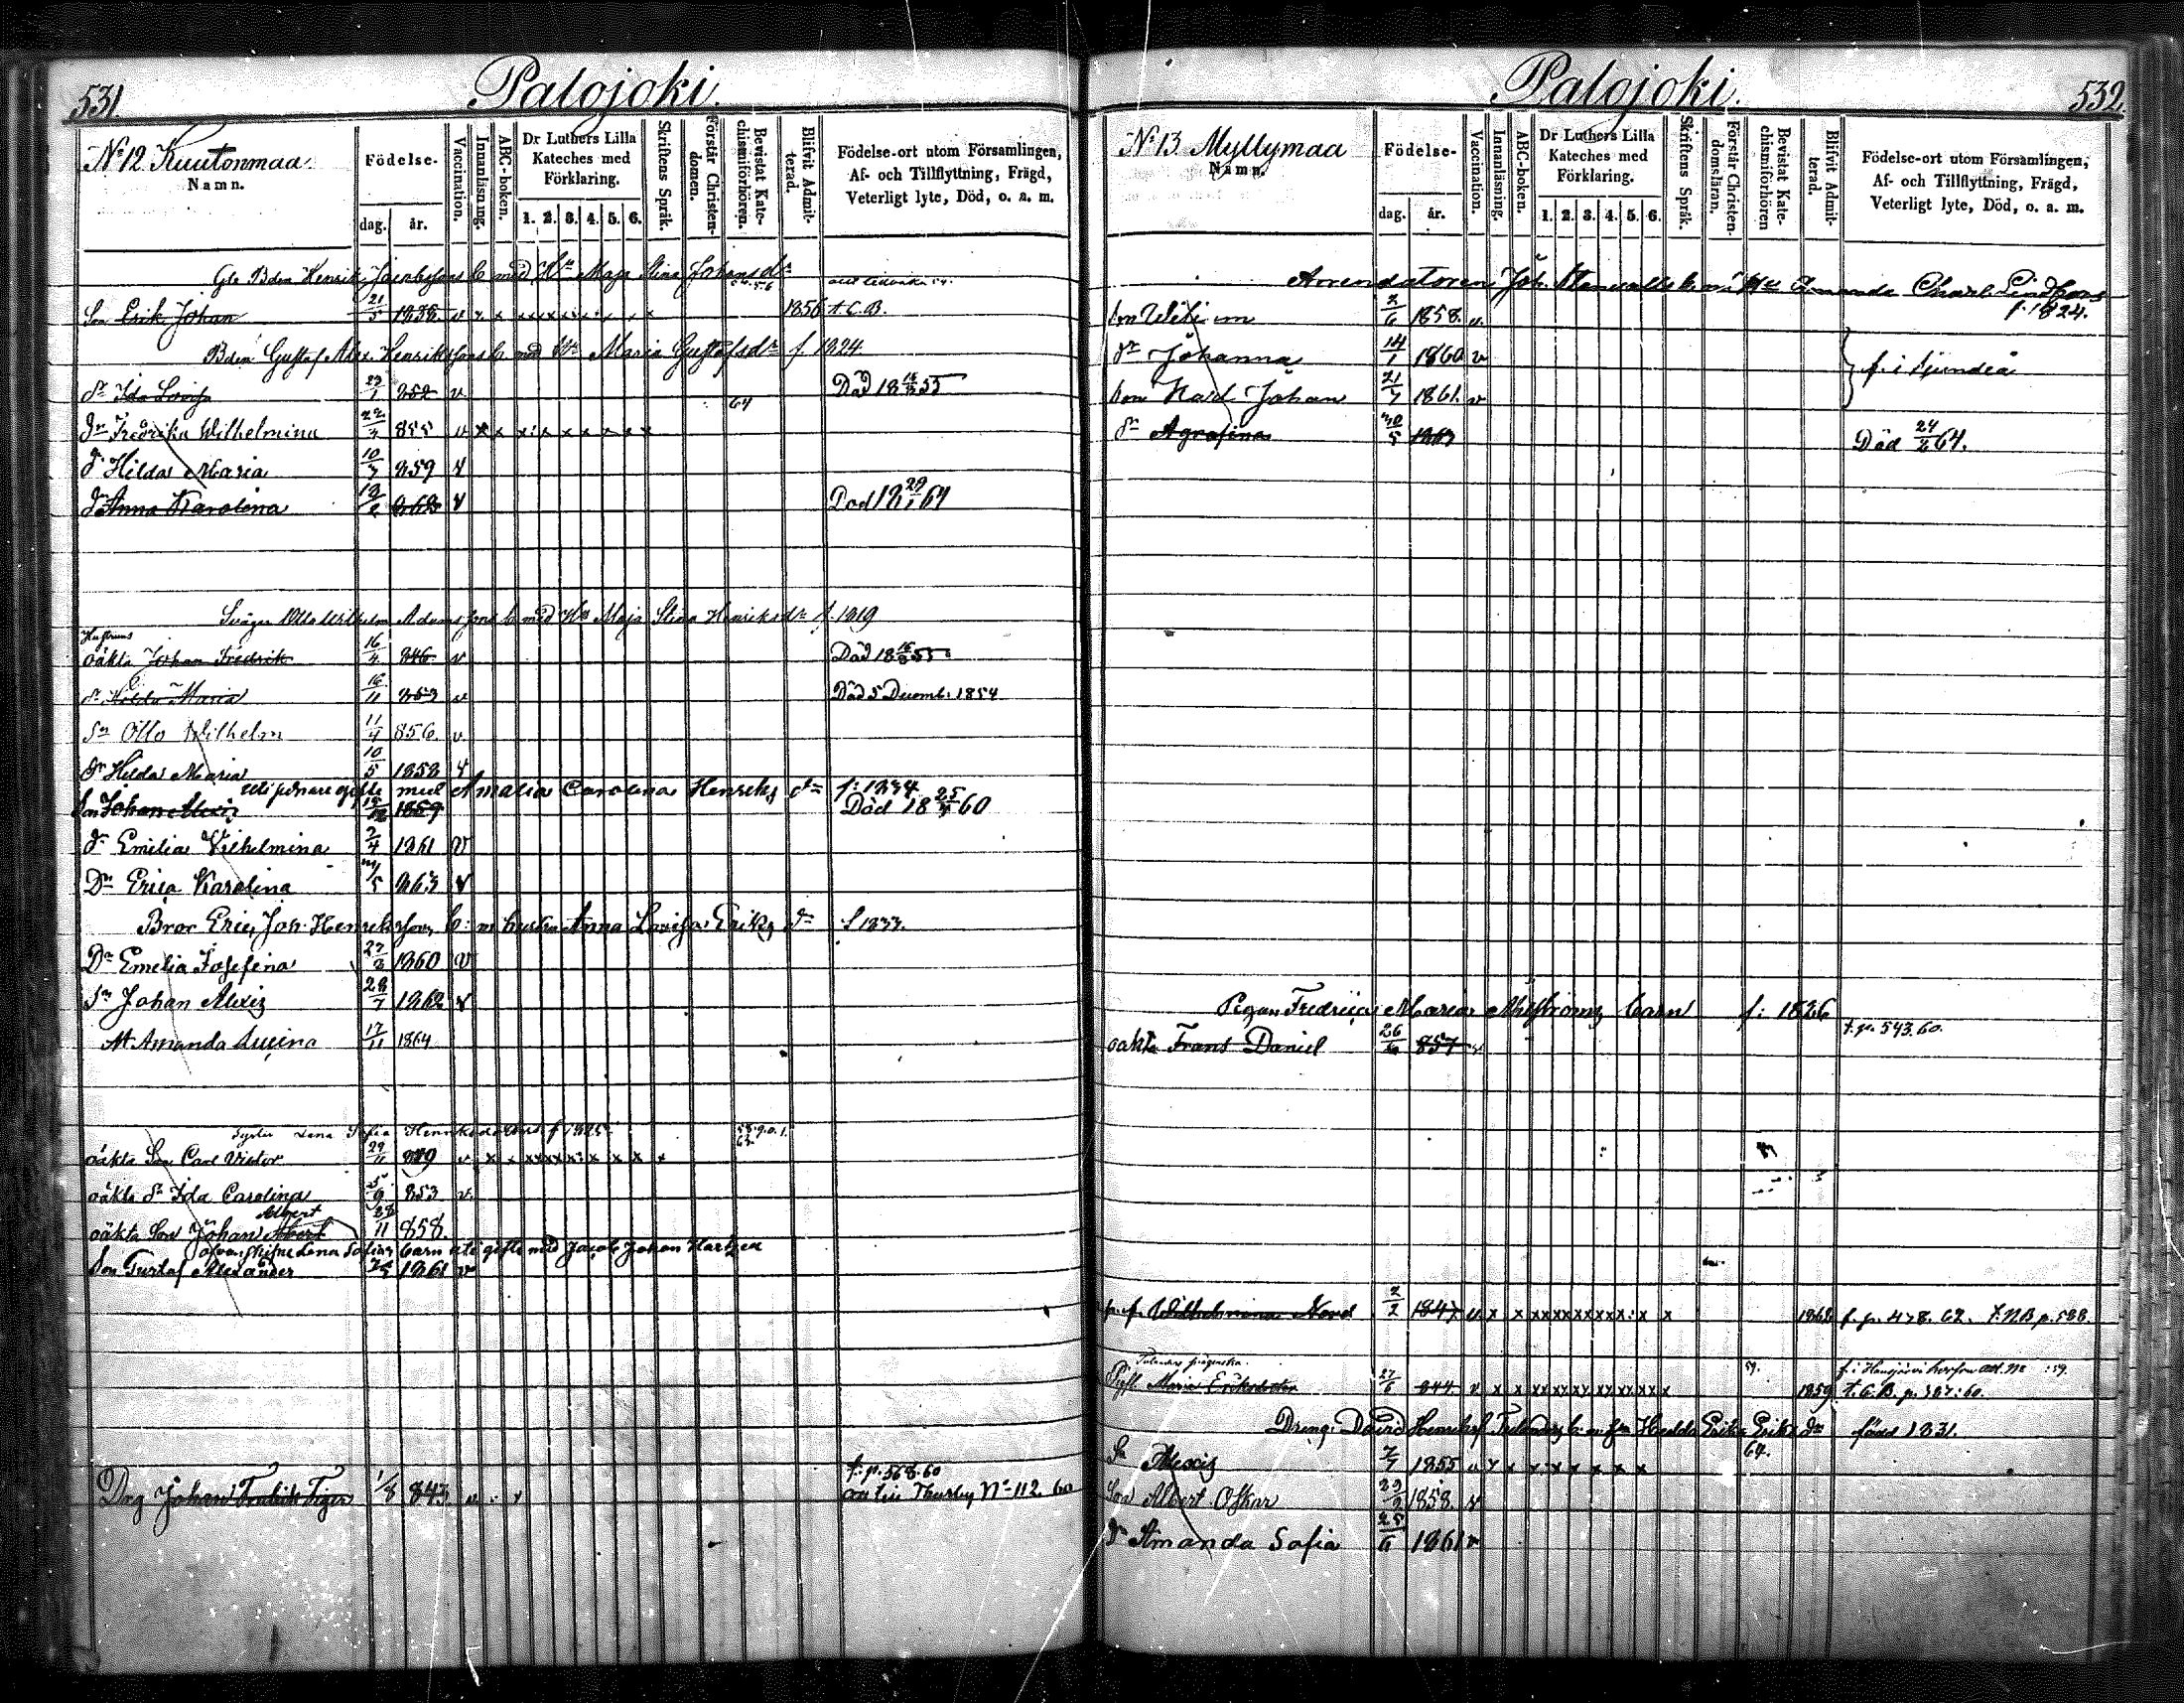 531.
Palojoki.
No 12 Kuutonmaa.
Namn.
Födelse-
dag.
år.
Vaccination.
Innanläsning.
ABC-boken.
Dr Luthers Lilla
Kateches med
Förklaring.
1. 2. 3. 4. 5. 6.
Skriftens Språk.
Förstår Christen-
domen.
Bevistat Kate-
chismiförhören.
Blifvit Admit-
terad.
Födelse-ort utom Församlingen,
Af- och Tillflyttning, Frägd,
Veterligt lyte, Död, o. a. m.
Gle Bden Henrik Jacobssons b med Hu Maja Stina Johansdr
Son Erik Johan 21/5 1835 v x x x x x x x x x x 1856 t. C. B.
Bden Gustaf Alex. Henrikssons b med Hu Maria Gustafsdr f. 1824.
dr Ida Lovisa 852 v. Död 18 55
64
dr Fredrika Wilhelmina 855 v x x x x x x x x x
dr Hilda Maria 10/3 859 v
dr Anna Karolina 862 v Död 18 64
Svåger Otto Wilhelm Adamssons b med Hu Maja Stina Henriksdr f. 1819
Hustruns
oäkta Johan Fredrik 16/4 846 v Död 18 55
dr Hilda Maria 16/11 853 v Död 5 Decemb. 1854
Sn Otto Wilhelm 11/4 856. v.
dr Hilda Maria 10/5 1858 v
uti senare gifte med Amalia Carolina Henriks dr f: 1834
Son Johan Alexis 1859 Död 18 25/4 60
dr Emilia Vilhelmina 2/4 1861 v
Dr Erica Karolina 5 863 v
Bror Eric Joh. Henrikssons b: m hustru Anna Lovisa Eriks dr f 1833.
Dr Emelia Josefina 1860 v
Sn Johan Alexis 28/7 1862 v
dr Amanda Lucina 17/11 1864
Syster Lena Sofia Henriksdotters f 1825
oäkta Son Carl Victor 29/11 849 v x x x x x x x x x x
oäkta dr Ida Carolina 5/9 853 v.
Albert
oäkta Son Johan Albert 28/11 858.
ofvanskrifne Lena Sofias barn uti gifte med Jacob Johan Hartzen
Son Gustaf Alexander 1861 v
Drg Johan Fredrik Tiger 1/8 843.
t. p. 568. 60
Thusby No 112. 60
532.
Palojoki.
No 13 Myllymaa
Namn.
Födelse-
dag.
år.
Vaccination.
Innanläsning.
ABC-boken.
Dr Luthers Lilla
Kateches med
Förklaring.
1. 2. 3. 4. 5. 6.
Skriftens Språk.
Förstår Christen-
domsläran.
Bevistat Kate-
chismiförhören
Blifvit Admit-
terad.
Födelse-ort utom Församlingen,
Af- och Tillflyttning, Frägd,
Veterligt lyte, Död, o. a. m.
Arrendatoren Joh. b m Hu Amanda Charl. Lindfors
f. 1824.
Son 2/6 1858. v.
dr Johanna 14/1 1860 v
f. i Sjundeå
Son Karl Johan 21/7 1861. v
dr Agrafina 30/5 1863 Död 24/2 64.
Pigan Fredrica Maria barn f: 1826
oäkta Frans Daniel 26 857 v t. p. 543. 60.
p. f. Wilhelmina Nord 2/2 1847 v x x x x x x x x x x : x x 1862 f. p. 478. 62. t. NB p. 588.
59.
Maria Eriksdotter 27/6 844 v x x x x x x x x x x x 1859 t. C. B. p. 387: 60.
Dreng. David Henrikss Tulanders b. m. hu Hedda Erika Eriks dr född 1831.
64.
Sn Alexis 7/7 1855 v x x x x x x x x
Son Albert Oskar 1858. v
dr Amanda Sofia 25/6 1861 v